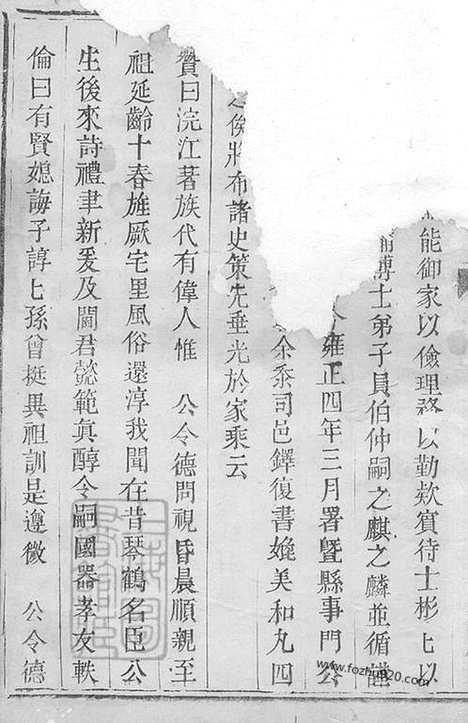 能御家以儉理務以勤欵賓待士彬匕以
博士弟子員伯仲嗣之麒之麟並循謹
雍正四年三月署暨縣事門公
余忝司邑鐸復書媲美和丸四
俟將布諸史策先垂光於家乘云
贊曰浣江著族代有偉人惟　公令德問視昏晨順親至
祖延齡十春旌厥宅里風俗還淳我聞在昔琴鶴名臣公
生後來詩禮聿新爰及閫君懿範真醇令嗣國器孝友軼
倫曰有賢媳誨子諄匕孫曾挺異祖訓是遵微　公令德
www.fozhu920.com